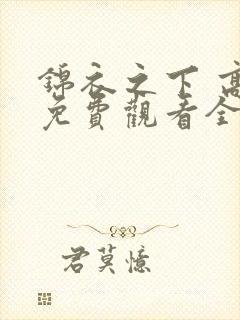 錦衣之下 高
免費觀看全
君莫憶